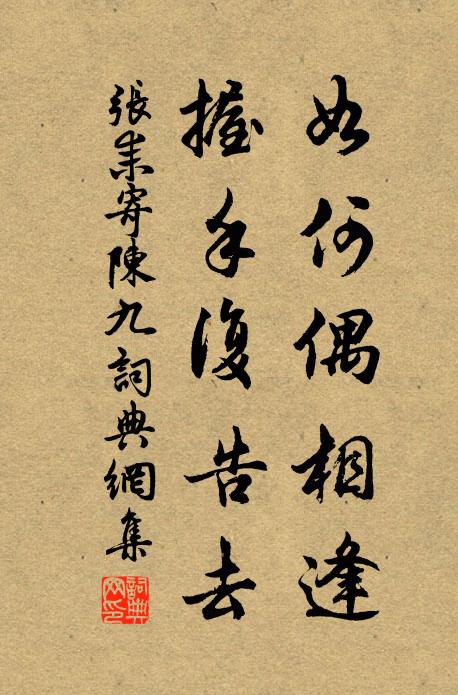 如何偶相逢
握手復告去
張耒寄陳九詞典網集
詞典网印